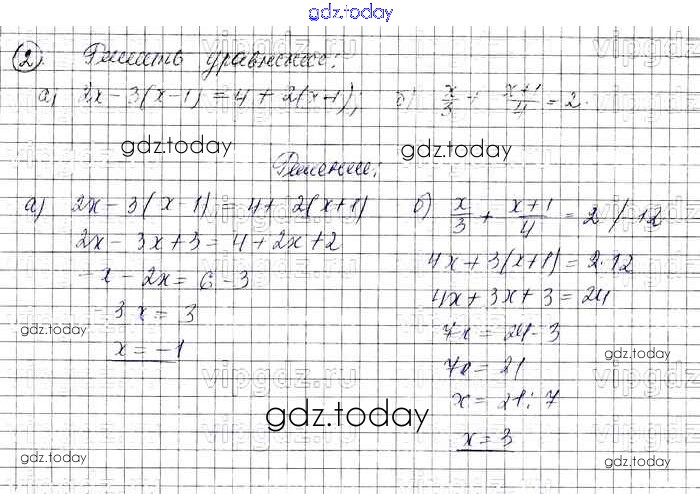 gdz.today
② Решить уравнение:
а) 2x - 3(x-1) = 4 + 2(x+1); б) x/3 + (x+1)/4 = 2.
gdz.today gdz.today
Решение:
а) 2x - 3(x-1) = 4 + 2(x+1)
2x - 3x + 3 = 4 + 2x + 2
-x - 2x = 6 - 3
3x = 3
gdz.today
x = -1
б) x/3 + (x+1)/4 = 2 / · 12
4x + 3(x+1) = 2·12
4x + 3x + 3 = 24
7x = 24 - 3
gdz.today
7x = 21
x = 21 : 7
x = 3
vipgdz.ru
gdz.today
gdz.today
gdz.today